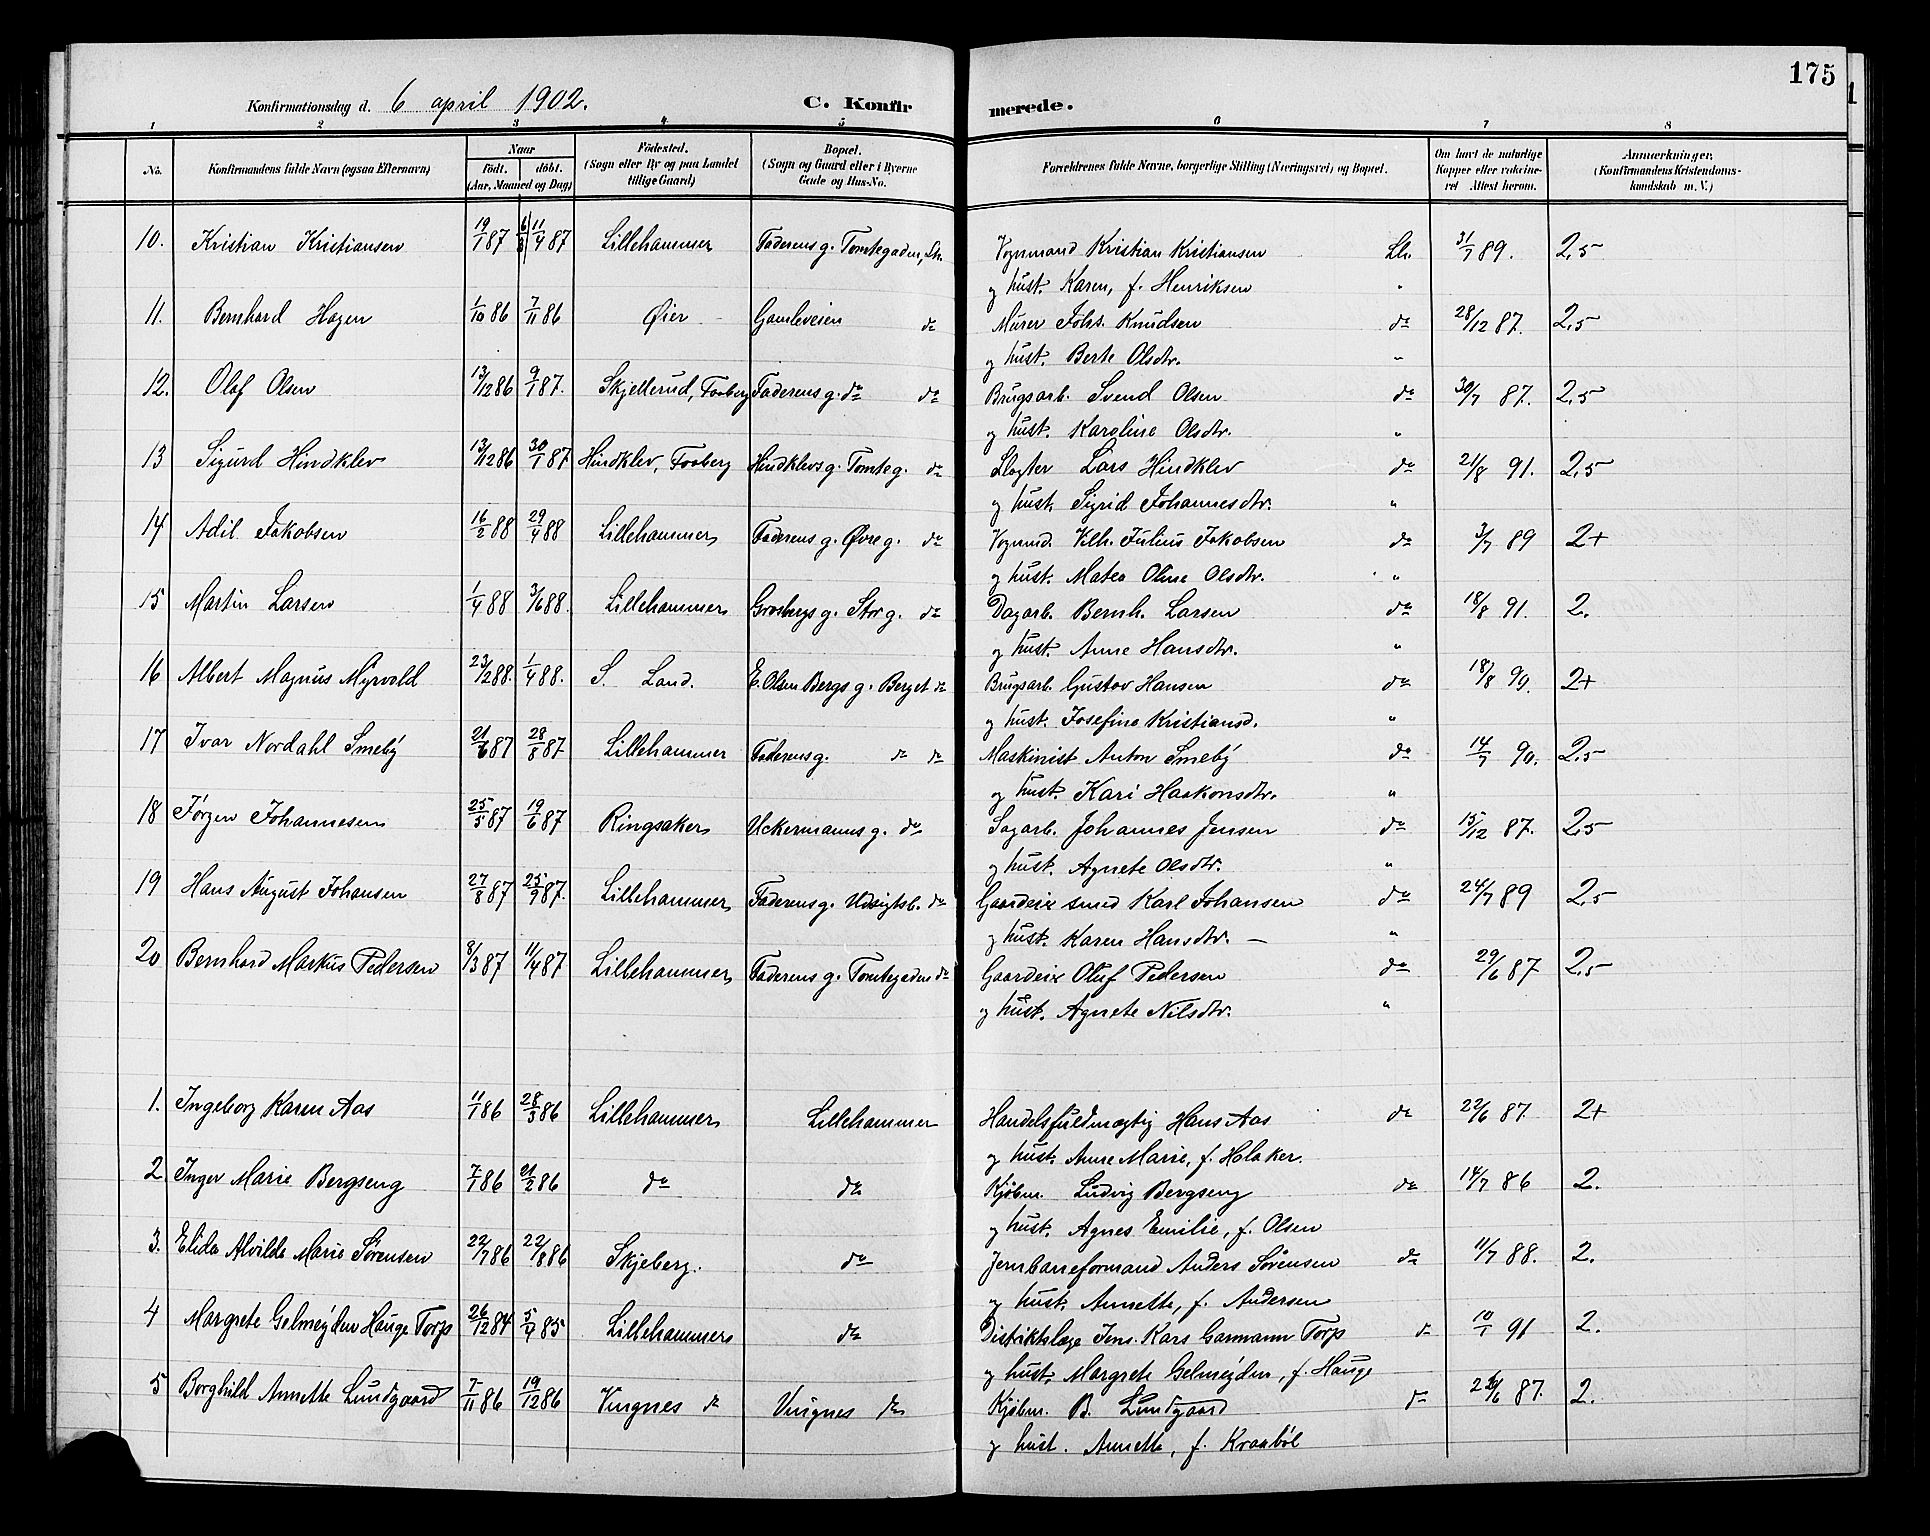 175
Konfirmationsdag d. 6 april 1902. C. Konfirmerede.
1 2 3 4 5 6 7 8
No. Konfirmandens fulde Navn (ogsaa Efternavn) Naar født. døbt. (Aar, Maaned og Dag) Fødested. (Sogn eller By og paa Landet tillige Gaard) Bopæl. (Sogn og Gaard eller i Byerne Gade og Hus-No. Forældrenes fulde Navne, borgerlige Stilling (Næringsvei) og Bopæl. Om havt de naturlige Kopper eller vakcineret Attest herom. Anmærkninger. (Konfirmandens Kristendomskundskab m. V.)
10. Kristian Kristiansen 19/1 87 11/4 87 Lillehammer Faderens g. Tomtegaden, Lh. Vognmand Kristian Kristiansen Lh. 31/7 89. 2,5
og hust. Karen, f. Henriksen "
11. Bernhard Hagen 1/10 86 7/11 86 Øier Gamleveien do Murer Johs. Knudsen do 28/12 87. 2,5
og hust. Berte Olsdtr. "
12. Olaf Olsen 13/12 86 9/1 87. Skjellerud, Faaberg Faderens g. do do Brugsarb. Svend Olsen do 30/7 87. 2,5
og hust. Karoline Olsdtr. "
13 Sigurd Hindklev 13/12 86 30/1 87 Hindklev, Faaberg Hindklevs g. Tomteg. do Slagter Lars Hindklev do 21/8 91. 2,5
og hust. Sigrid Johannesdtr. "
14 Adil Jakobsen 16/2 88 29/4 88 Lillehammer Faderens g. Øvre g. do Vognmd. Vilh. Julius Jakobsen do 3/7 89 2+
og hust. Matea Oline Olsdtr. "
15 Martin Larsen 1/4 88 3/6 88. Lillehammer Grosbergs g. Storg. do Dagarb. Bernh. Larsen do 18/8 91. 2.
og hust. Anne Hansdtr. "
16 Albert Magnus Myrvold 23/2 88. 1/4 88. S. Land. E. Olsen Bergs g. Berget do Brugsarb. Gustav Hansen do 18/8 99. 2+
og hust. Josefine Kristiansd. "
17 Ivar Nordahl Smeby 21/6 87 28/8 87. Lillehammer Faderens g. do do Maskinist Anton Smeby do 14/7 90. 2,5
og hust. Kari Haakonsdtr. "
18 Jørgen Johannesen 25/5 87 19/6 87 Ringsaker Uckermanns g. do Sagarb. Johannes Jensen do 15/12 87. 2,5
og hust. Agnete Olsdtr. "
19 Hans August Johansen 27/8 87 25/9 87. Lillehammer Faderens g. Udsigtsb. do Gaardeier smed Karl Johansen do 24/7 89 2,5
og hust. Karen Hansdtr. — "
20 Bernhard Markus Pedersen 8/3 87 11/4 87 Lillehammer Faderens g. Tomtegaden do Gaardeier Oluf Pedersen do 29/6 87 2,5
og hust. Agnete Nilsdtr. "
1. Ingeborg Karen Aas 11/1 86 28/3 86 Lillehammer Lillehammer Handelsfuldmægtig Hans Aas do 22/6 87. 2+
og hust. Anne Marie, f. Holaker.
2 Inger Marie Bergseng 7/1 86 21/2 86 do do Kjøbm. Ludvig Bergseng do 14/7 86 2.
og hust. Agnes Emilie, f. Olsen
3. Elida Alvilde Marie Sørensen 22/7 86 22/8 86 Skjeberg. do Jernbaneformand Anders Sørensen do 11/7 88. 2.
og hust. Annette, f. Andersen
4 Margrete Gelmeyden Hauge Torp 26/12 84 5/4 85 Lillehammer do Distriktslæge Jens Kars Garmann Torp do 10/1 91 2.
og hust. Margrete Gelmeyden, f. Hauge
5 Borghild Annette Lundgaard 7/11 86 19/12 86 Vingnes do Vingnes do Kjøbm. B. Lundgaard do 87. 2.
og hust. Annette, f. Kraabøl